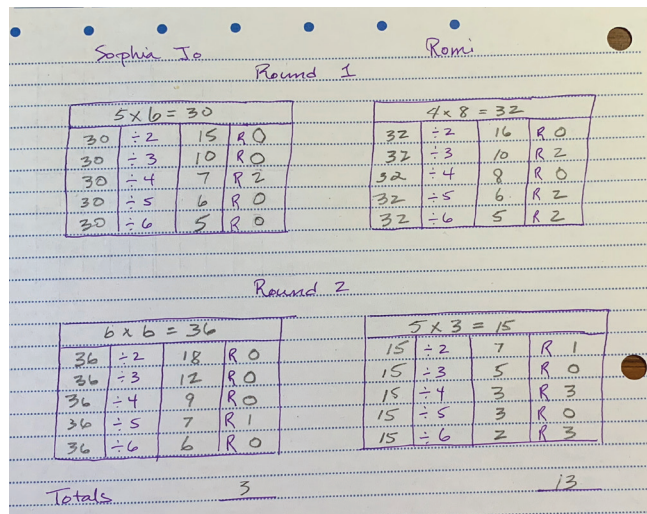 Sophia Jo Romi
Round 1
5 x 6 = 30
30 ÷2 15 R 0
30 ÷3 10 R 0
30 ÷4 7 R 2
30 ÷5 6 R 0
30 ÷6 5 R 0
4 x 8 = 32
32 ÷2 16 R 0
32 ÷3 10 R 2
32 ÷4 8 R 0
32 ÷5 6 R 2
32 ÷6 5 R 2
Round 2
6 x 6 = 36
36 ÷2 18 R 0
36 ÷3 12 R 0
36 ÷4 9 R 0
36 ÷5 7 R 1
36 ÷6 6 R 0
5 x 3 = 15
15 ÷2 7 R 1
15 ÷3 5 R 0
15 ÷4 3 R 3
15 ÷5 3 R 0
15 ÷6 2 R 3
Totals 3 13